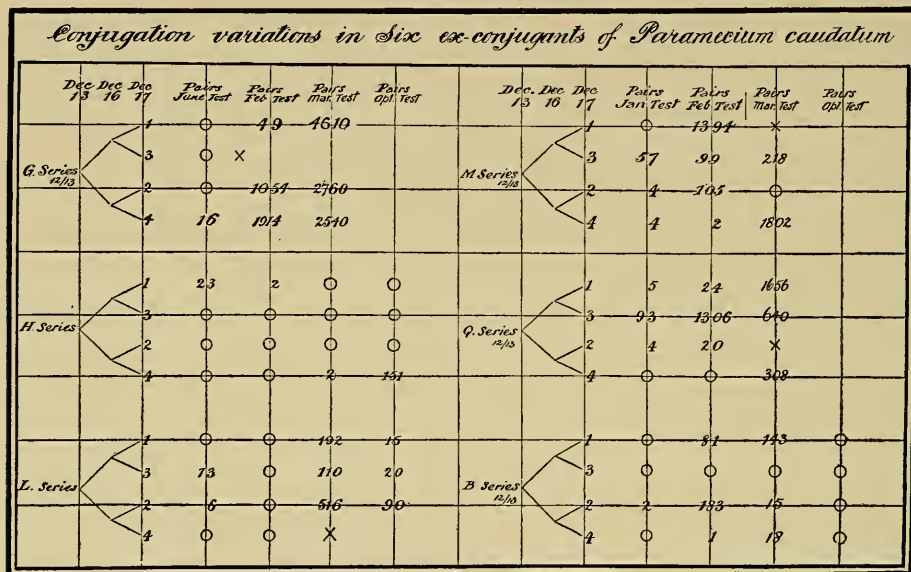 Conjugation variations in Six ex-conjugants of Paramecium caudatum
Dec 13 Dec 16 Dec 17 Pairs June Test Pairs Feb Test Pairs Mar. Test Pairs Opt. Test
G. Series 12/13
1 O 49 4610
3 O X
2 O 1054 2760
4 16 1914 2540
H. Series
1 23 2 O O
3 O O O O
2 O O O O
4 O O 2 151
L. Series
1 O O 192 15
3 73 O 110 20
2 6 O 516 90
4 O O X
Dec. 13 Dec 16 Dec 17 Pairs Jan Test Pairs Feb Test Pairs Mar. Test Pairs Opt. Test
M Series 12/13
1 O 1394 X
3 57 99 218
2 4 105 O
4 4 2 1802
Q. Series 12/13
1 5 24 1656
3 93 1306 640
2 4 20 X
4 O O 308
B Series 12/13
1 O 81 143 O
3 O O O O
2 2 183 15 O
4 O 1 18 O